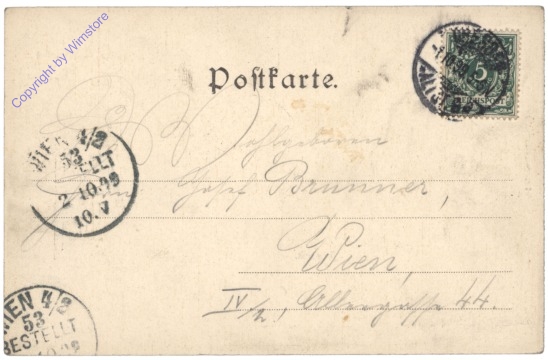 Copyright by Wimstore
Postkarte.
5
REICHSPOST
WIEN 4/2
53
BESTELLT
2 10.99
10.V
Wohlgeboren
Josef Brunner,
Wien,
IV/2, 44.
WIEN 4/2
53
BESTELLT